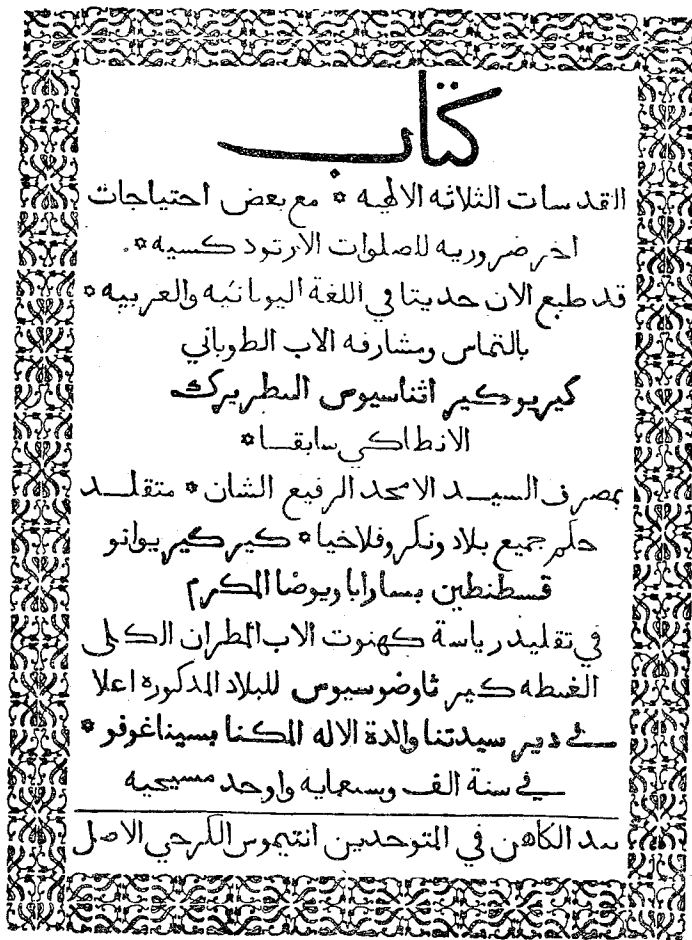 كتاب
القدسات الثلاثه الالهيه * مع بعض احتياجات
اخر ضروريه للصلوات الارتودكسيه *.
قد طبع الان حديتا في اللغة اليونانيه والعربيه *
بالتماس ومشارفه الاب الطوباني
كيريوكير اثناسيوس البطريرك
الانطاكي سابقا *
بمصرف السيد الامجد الرفيع الشان * متقلد
حكم جميع بلاد ونكروفلاخيا * كير كير يوانو
قسطنطين بسارابا ويوضا المكرم
في تقليد رياسة كهنوت الاب المطران الكلى
الغبطه كير ثاوضوسيوس للبلاد المذكورة اعلا
في دير سيدتنا والدة الاله المكنا بسيناغوفو *
في سنة الف وسبعمايه واوحد مسيحيه
بيد الكاهن في المتوحدين انتيموس الكرجي الاصل